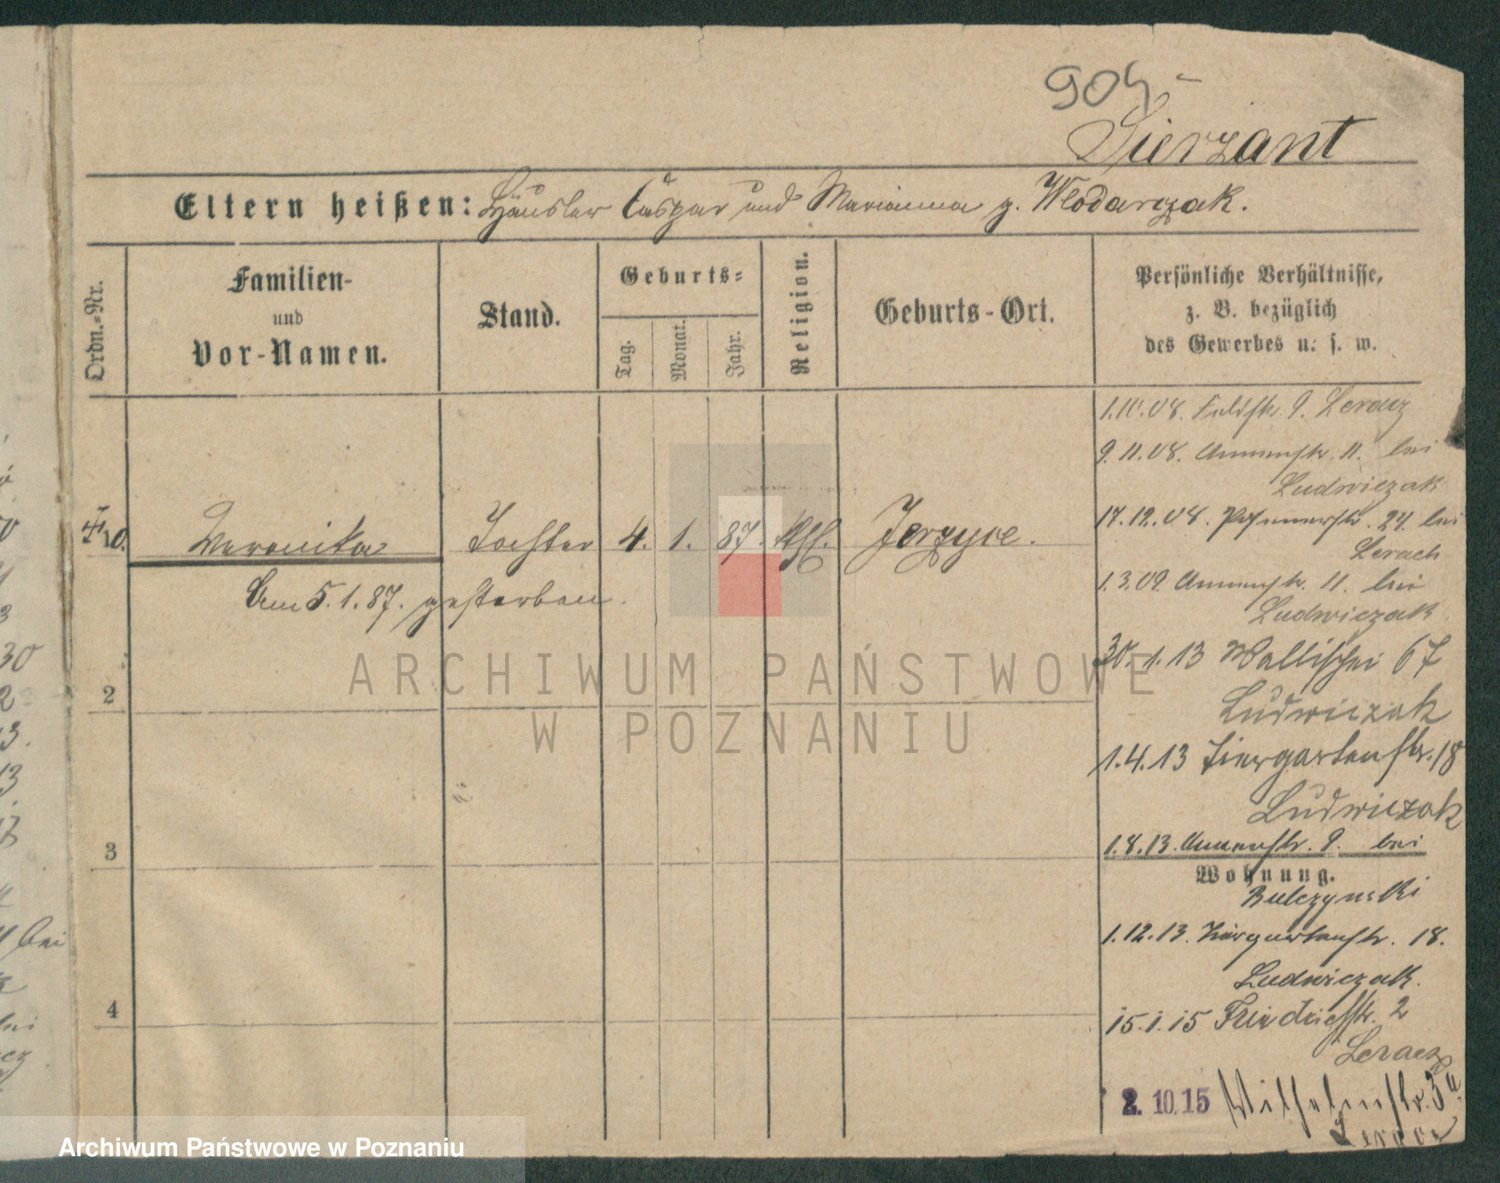 905
Sierzant
Eltern heißen: Häusler Caspar und Marianna g. Wlodarczak.
Ordn.-Nr.
Familien-
und
Vor-Namen.
Stand.
Geburts-
Tag.
Monat.
Jahr.
Religion.
Geburts-Ort.
Persönliche Verhältnisse,
z. B. bezüglich
des Gewerbes u. s. w.
1.10.08. Feldstr. 9. Leracz
9.11.08. Annenstr. 11. bei
Ludwiczak
17.12.08. 24. bei
Lerach
1.3.09. Annenstr. 11. bei
Ludwiczak
30.1.13 Wallischei 67
Ludwiczak
1.4.13 Tiergartenstr. 18
Ludwiczak
1.8.13. Annenstr. 9. bei
Wohnung.
Bulczynski
1.12.13. Tiergartenstr. 18.
Ludwiczak.
15.1.15 Friedrichstr. 2
Leracz
2. 10. 15 Wilhelmstr. 3a
Leracz
10. Veronika Tochter 4. 1. 87. kth. Jerzyce.
Am 5.1.87. gestorben.
2
3
4
30
bei
ARCHIWUM PAŃSTWOWE
W POZNANIU
Archiwum Państwowe w Poznaniu